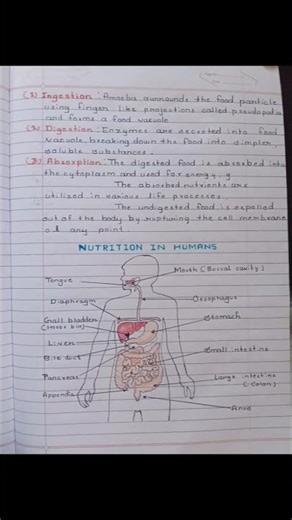 (1) Ingestion : Amoeba surrounds the food particle
using finger like projections called pseudopodia
and forms a food vacuole
(2) Digestion : Enzymes are secreted into food
vacuole, breaking down the food into simpler,
soluble substances.
(3) Absorption : The digested food is absorbed into
the cytoplasm and used for energy, g
The absorbed nutrients are
utilized in various life processes.
The undigested food is expelled
out of the body by rupturing the cell membrane
at any point.
NUTRITION IN HUMANS
Mouth (Buccal cavity)
Tongue
Diaphragm
Oesophagus
Gall bladder
Stomach
Liver
Bile duct
Small intestine
Pancreas
Large intestine
(Colon)
Appendix
Anus